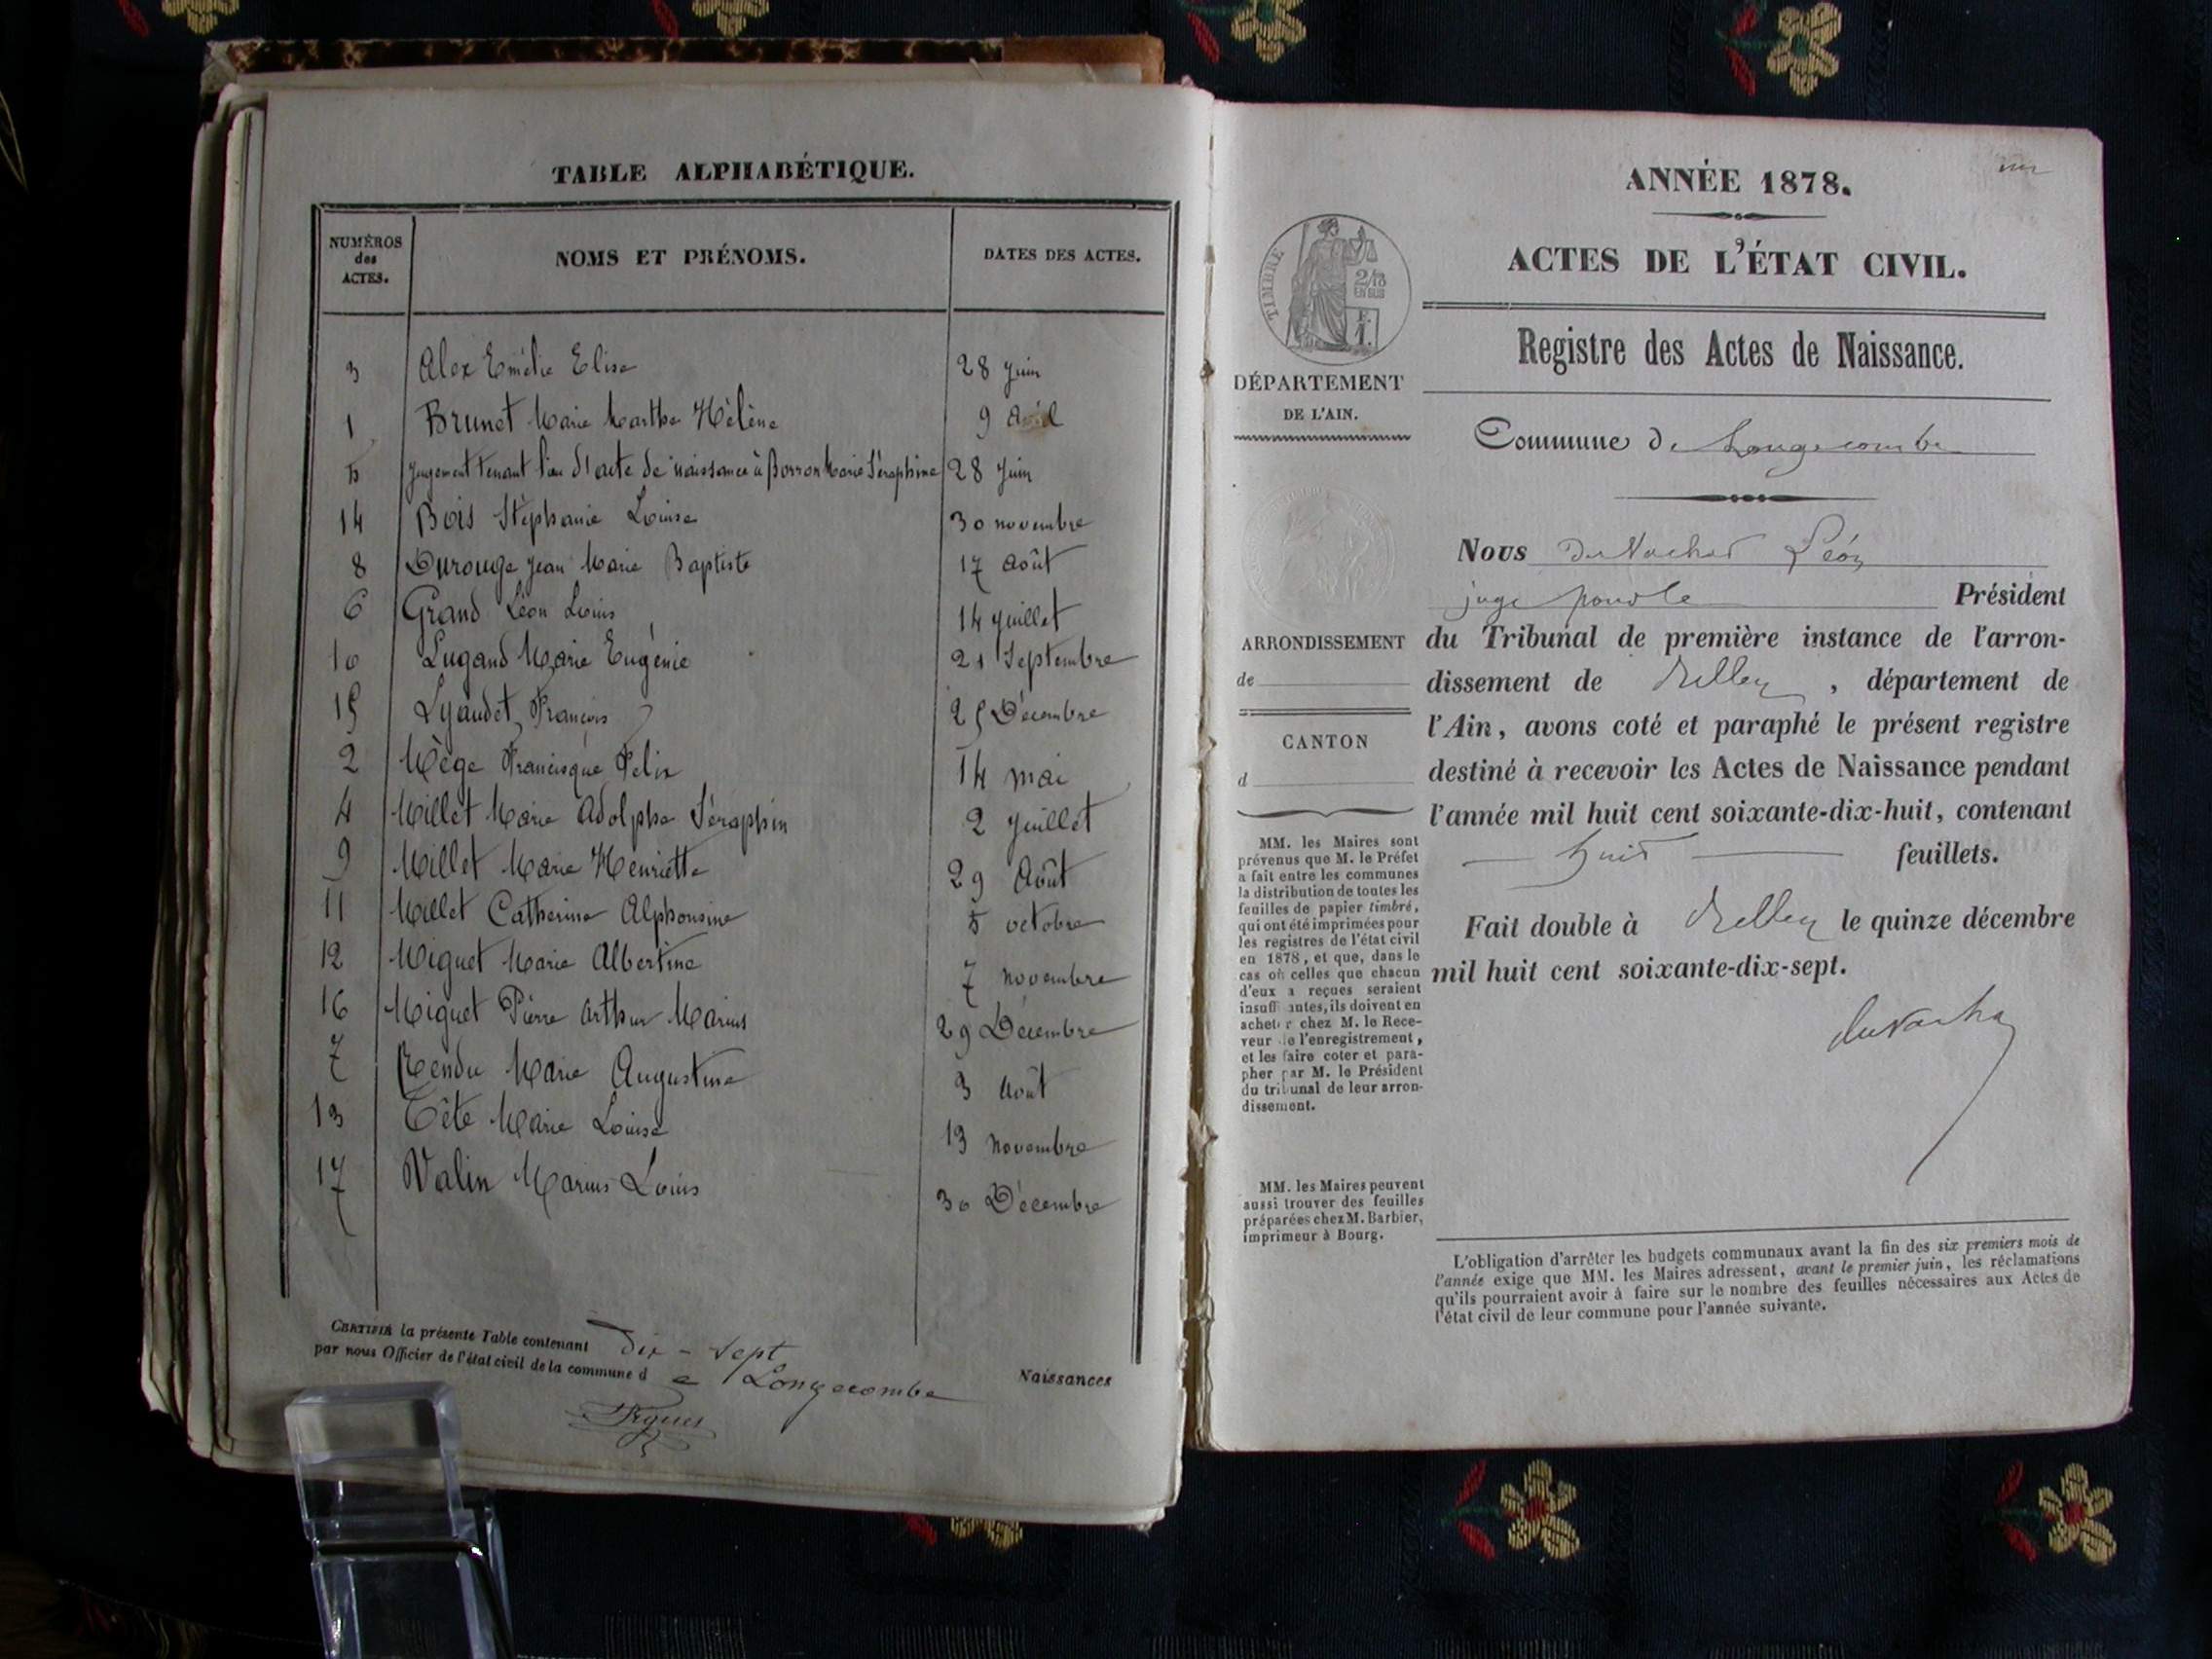 TABLE ALPHABÉTIQUE.
NUMÉROS des ACTES. NOMS ET PRÉNOMS. DATES DES ACTES.
3 Alex Emélie Elise 28 Juin
1 Brunet Marie Marthe Hélène 9 Avril
5 Jugement tenant lieu d'acte de naissance à Borron Marie Séraphine 28 Juin
14 Bois Stéphanie Louise 30 novembre
8 Durouge Jean Marie Baptiste 17 Août
6 Grand Léon Louis 14 Juillet
10 Lugand Marie Eugénie 21 Septembre
15 Lyaudet François 25 Décembre
2 Mège Francisque Félix 14 mai
4 Millet Marie Adolphe Séraphin 2 Juillet
9 Millet Marie Henriette 29 Août
11 Millet Catherine Alphonsine 5 octobre
12 Miguet Marie Albertine 7 novembre
16 Miguet Pierre Arthur Marius 29 Décembre
7 Rendu Marie Augustine 3 Août
13 Tête Marie Louise 13 Novembre
17 Valin Marius Louis 30 Décembre
CERTIFIÉ la présente Table contenant dix-sept Naissances
par nous Officier de l'état civil de la commune d e Longecombe
ANNÉE 1878.
ACTES DE L'ÉTAT CIVIL.
TIMBRE
2/10
EN SUS
F.
1.
Registre des Actes de Naissance.
DÉPARTEMENT
DE L'AIN.
Commune de Longecombe
Nous Léon
juge pour le Président
du Tribunal de première instance de l'arron-
dissement de Belley, département de
l'Ain, avons coté et paraphé le présent registre
destiné à recevoir les Actes de Naissance pendant
l'année mil huit cent soixante-dix-huit, contenant
huit feuillets.
Fait double à Belley le quinze décembre
mil huit cent soixante-dix-sept.
ARRONDISSEMENT
de
CANTON
d
MM. les Maires sont
prévenus que M. le Préfet
a fait entre les communes
la distribution de toutes les
feuilles de papier timbré,
qui ont été imprimées pour
les registres de l'état civil
en 1878, et que, dans le
cas où celles que chacun
d'eux a reçues seraient
insuffisantes, ils doivent en
acheter chez M. le Rece-
veur de l'enregistrement,
et les faire coter et para-
pher par M. le Président
du tribunal de leur arron-
dissement.
MM. les Maires peuvent
aussi trouver des feuilles
préparées chez M. Barbier,
imprimeur à Bourg.
L'obligation d'arrêter les budgets communaux avant la fin des six premiers mois de
l'année exige que MM. les Maires adressent, avant le premier juin, les réclamations
qu'ils pourraient avoir à faire sur le nombre des feuilles nécessaires aux Actes de
l'état civil de leur commune pour l'année suivante.